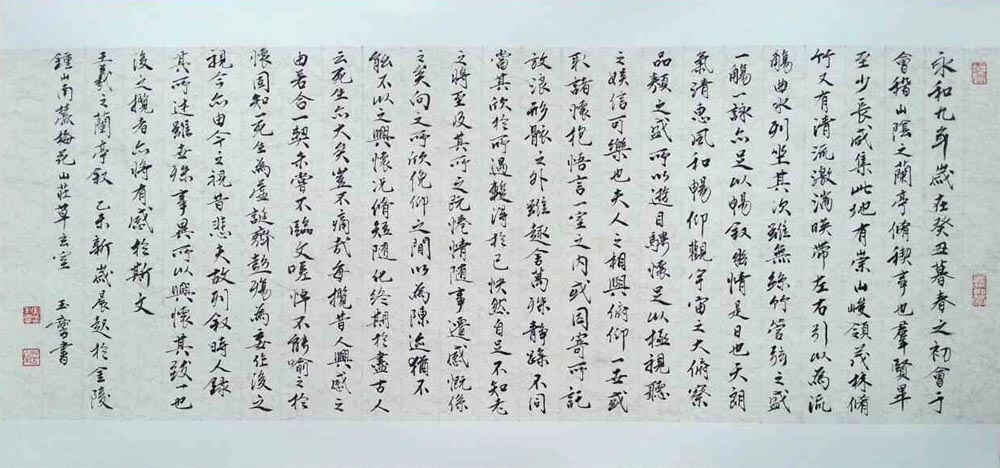 永和九年歲在癸丑暮春之初會于
會稽山陰之蘭亭脩禊事也羣賢畢
至少長咸集此地有崇山峻領茂林脩
竹又有清流激湍暎帶左右引以為流
觴曲水列坐其次雖無絲竹管絃之盛
一觴一詠亦足以暢敘幽情是日也天朗
氣清惠風和暢仰觀宇宙之大俯察
品類之盛所以遊目騁懷足以極視聽
之娛信可樂也夫人之相與俯仰一世或
取諸懷抱悟言一室之內或因寄所託
放浪形骸之外雖趣舍萬殊靜躁不同
當其欣於所遇蹔得於己怏然自足不知老
之將至及其所之既惓情隨事遷感慨係
之矣向之所欣俛仰之間以為陳迹猶不
能不以之興懷况脩短隨化終期於盡古人
云死生亦大矣豈不痛哉每攬昔人興感之
由若合一契未嘗不臨文嗟悼不能喻之於
懷固知一死生為虛誕齊彭殤為妄作後之
視今亦由今之視昔悲夫故列敘時人錄
其所述雖世殊事異所以興懷其致一也
後之攬者亦將有感於斯文
王羲之蘭亭敘 乙未新歲晨於金陵
鍾山南麓梅花山莊草玄室 玉書